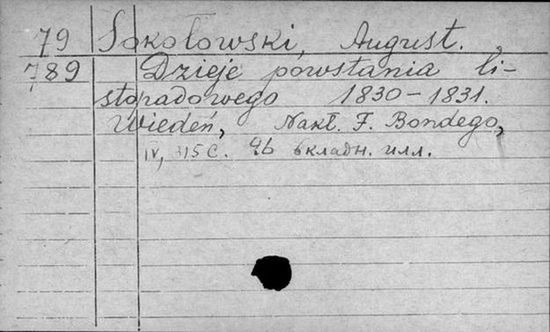 79 Sokołowski, August.
789 Dzieje powstania li-
stopadowego 1830-1831.
Wiedeń, Nakł. F. Bondego,
IV, 315 с. 96 вкладн. илл.